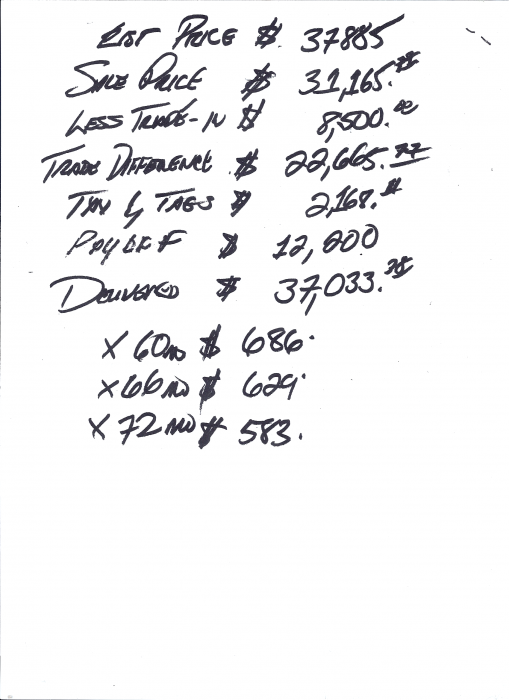 LIST PRICE $ 37885
SALE PRICE $ 31,165.
LESS TRADE-IN $ 8,500.00
TRADE DIFFERENCE $ 22,665.77
TAX & TAGS $ 2,168.
PAYOFF $ 12,200
DELIVERED $ 37,033.
X 60 MO $ 686.
X 66 MO $ 629.
X 72 MO $ 583.